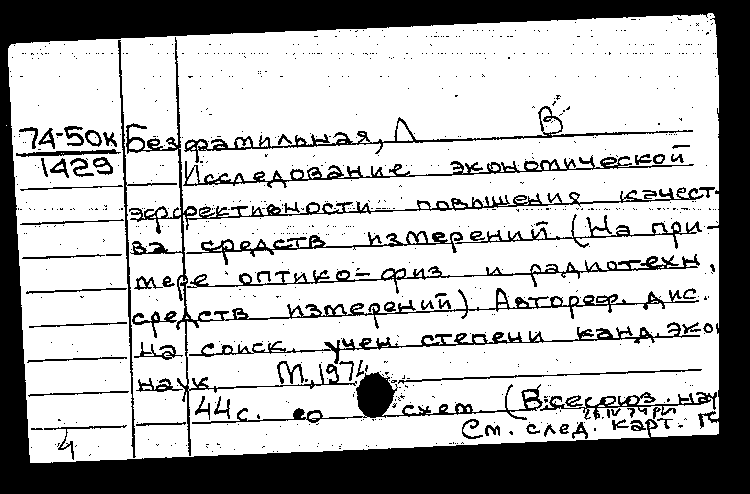 74-50к Безфамильная, Л В
1429 Исследование экономической
эффективности повышения качест-
ва средств измерений. (На при-
мере оптико-физ. и радиотехн.
средств измерений). Автореф. дис.
на соиск. учен. степени канд. эко
наук. М., 1974
44с. со схем. (Всесоюз. нау
См. след. карт.
4